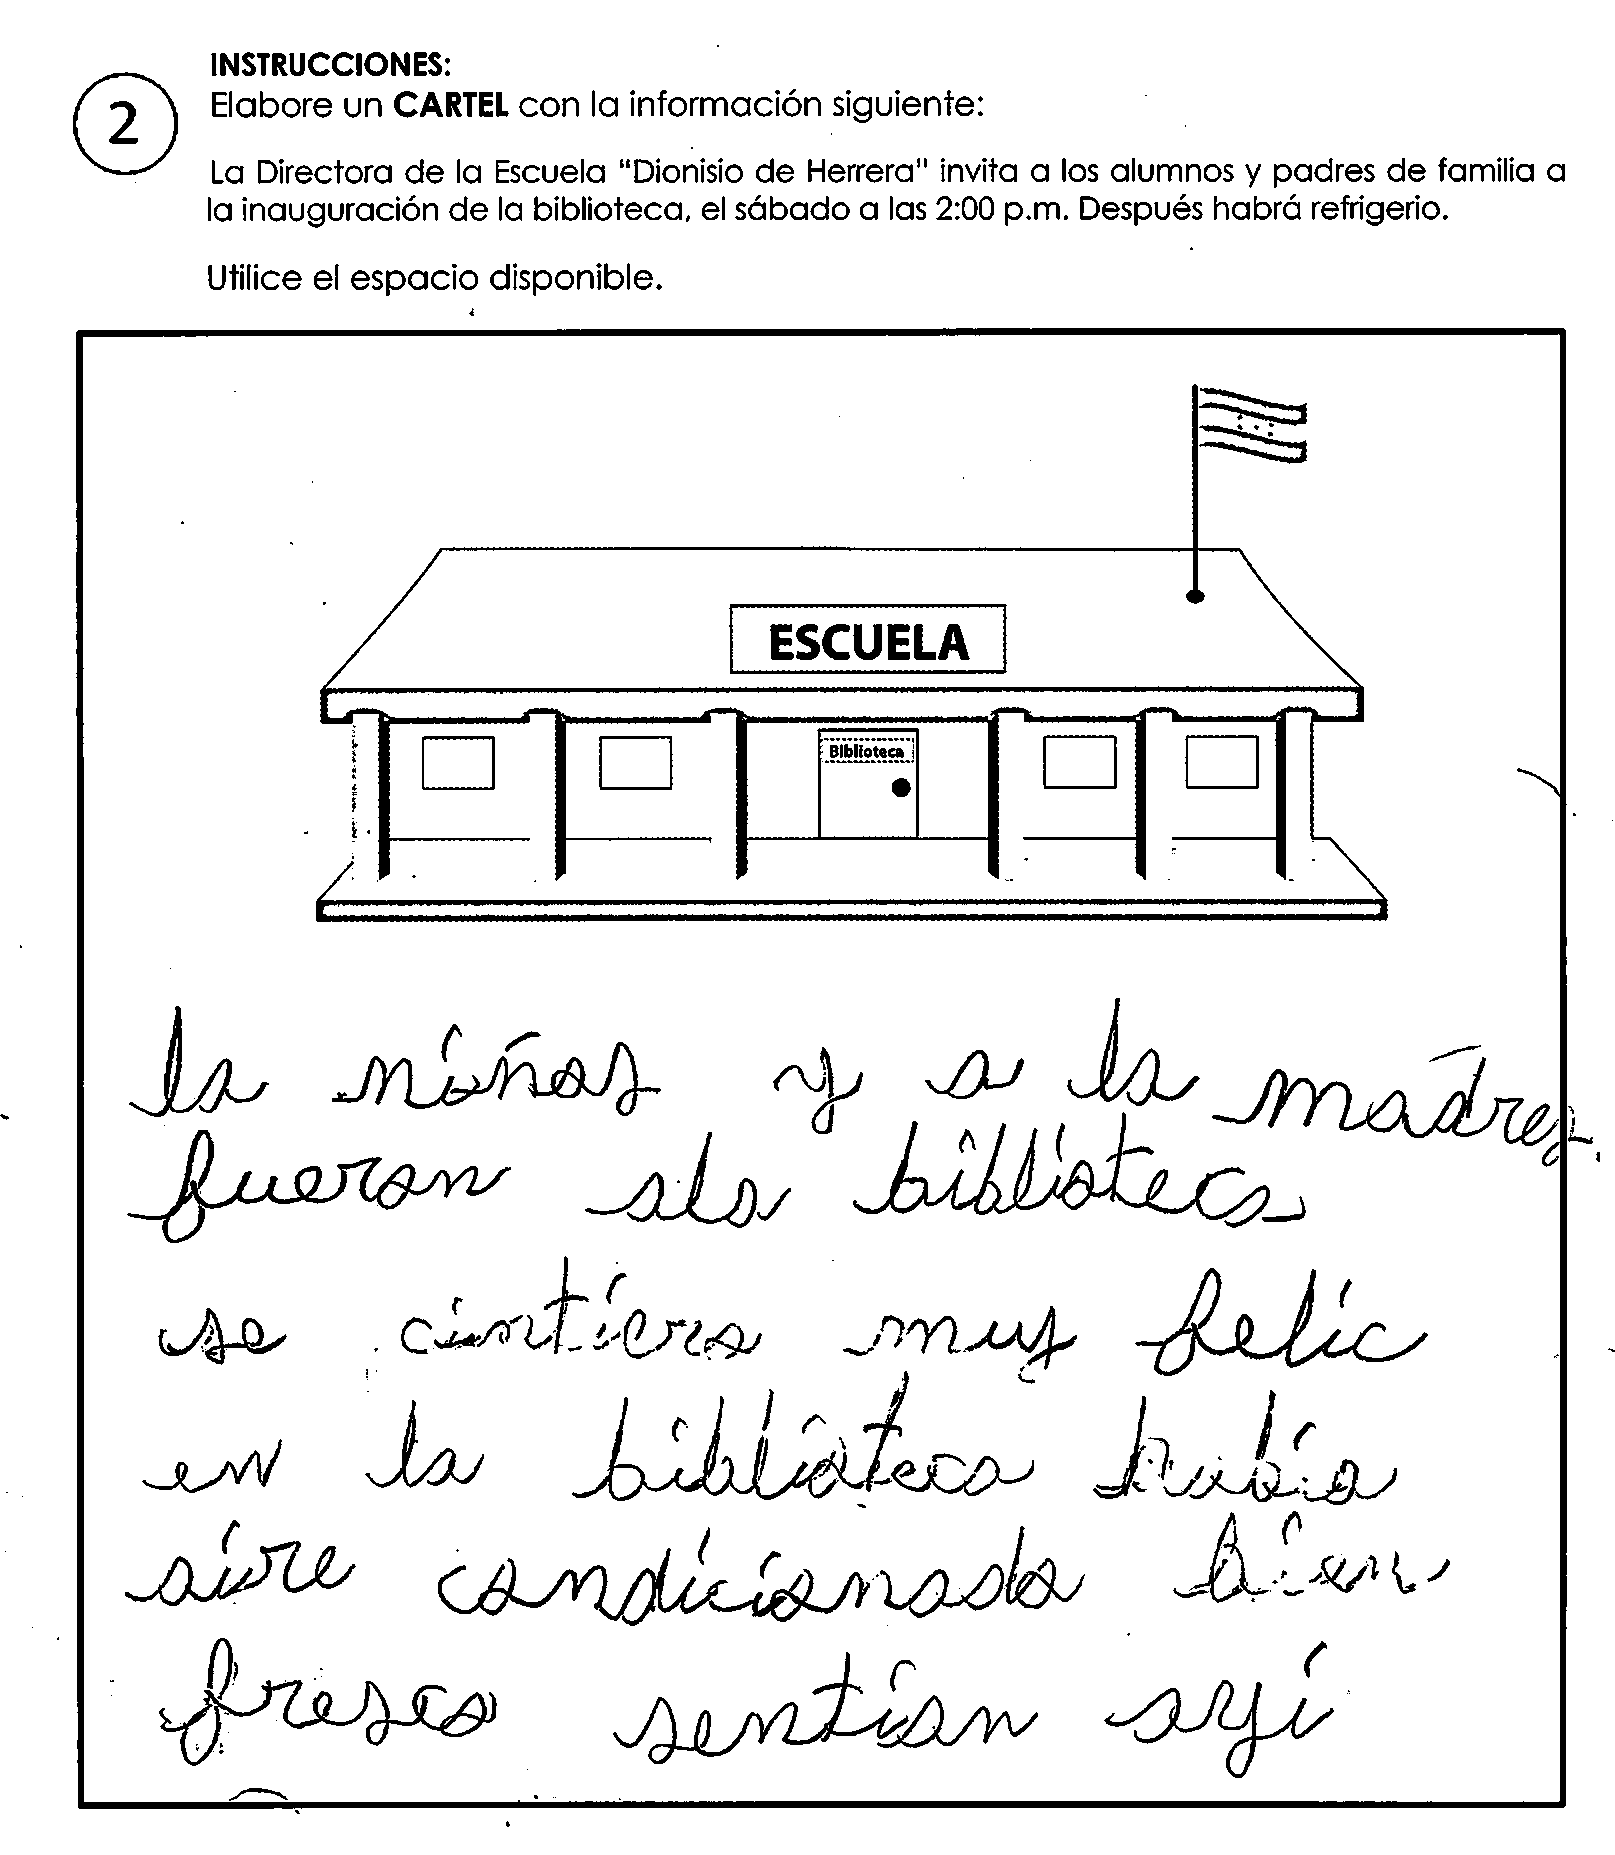 2
INSTRUCCIONES:
Elabore un CARTEL con la información siguiente:
La Directora de la Escuela "Dionisio de Herrera" invita a los alumnos y padres de familia a
la inauguración de la biblioteca, el sábado a las 2:00 p.m. Después habrá refrigerio.
Utilice el espacio disponible.
ESCUELA
Biblioteca
la niñas y a la madres
fueron ala biblioteca
se cintiera muy felic
en la biblioteca habia
aire condicionada bien
fresca sentian ayi